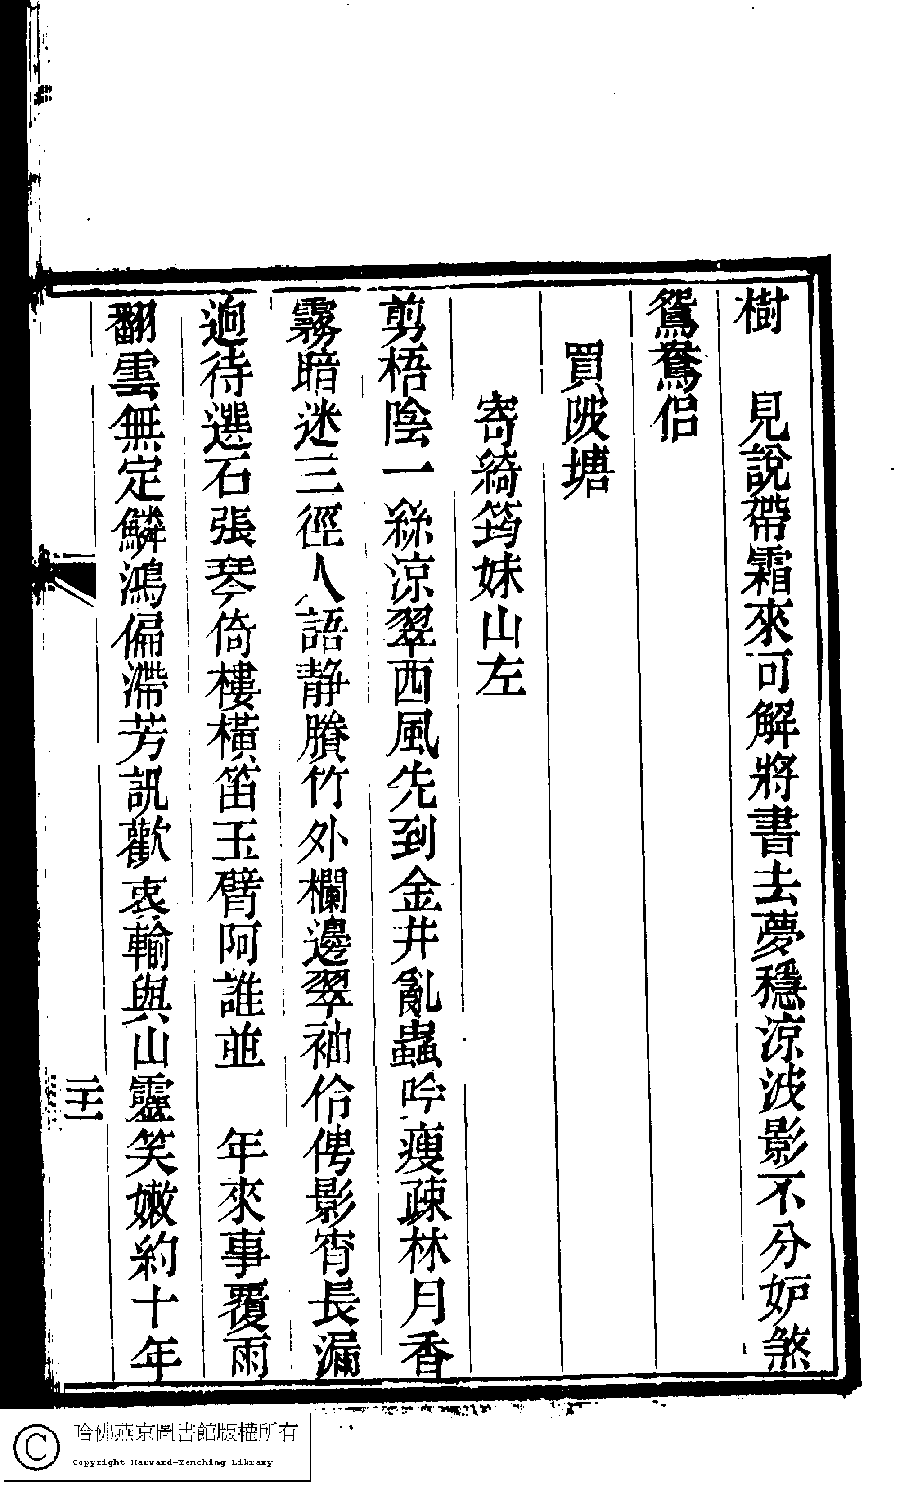 樹　見說帶霜來可解將書去夢穩涼波影不分妒煞
鴛鴦侶
買陂塘
寄綺筠妹山左
剪梧陰一絲涼翠西風先到金井亂蟲吟瘦疎林月香
霧暗迷三徑人語靜賸竹外欄邊翠袖伶俜影宵長漏
逈待選石張琴倚樓橫笛玉臂阿誰並　年來事覆雨
翻雲無定鱗鴻偏滯芳訊歡衷輸與山靈笑嫩約十年
二十一
哈佛燕京圖書館版權所有
Copyright Harvard-Yenching Library